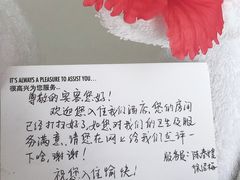 IT'S ALWAYS A PLEASURE TO ASSIST YOU...
很高兴为您服务...
尊敬的宾客您好!
欢迎您入住我们酒店,您的房间
已经打扫好了,如您对我们的卫生及服
务满意,请您在网上给我们点评一
下哈,谢谢!
服务员:陈春
祝您入住愉快!